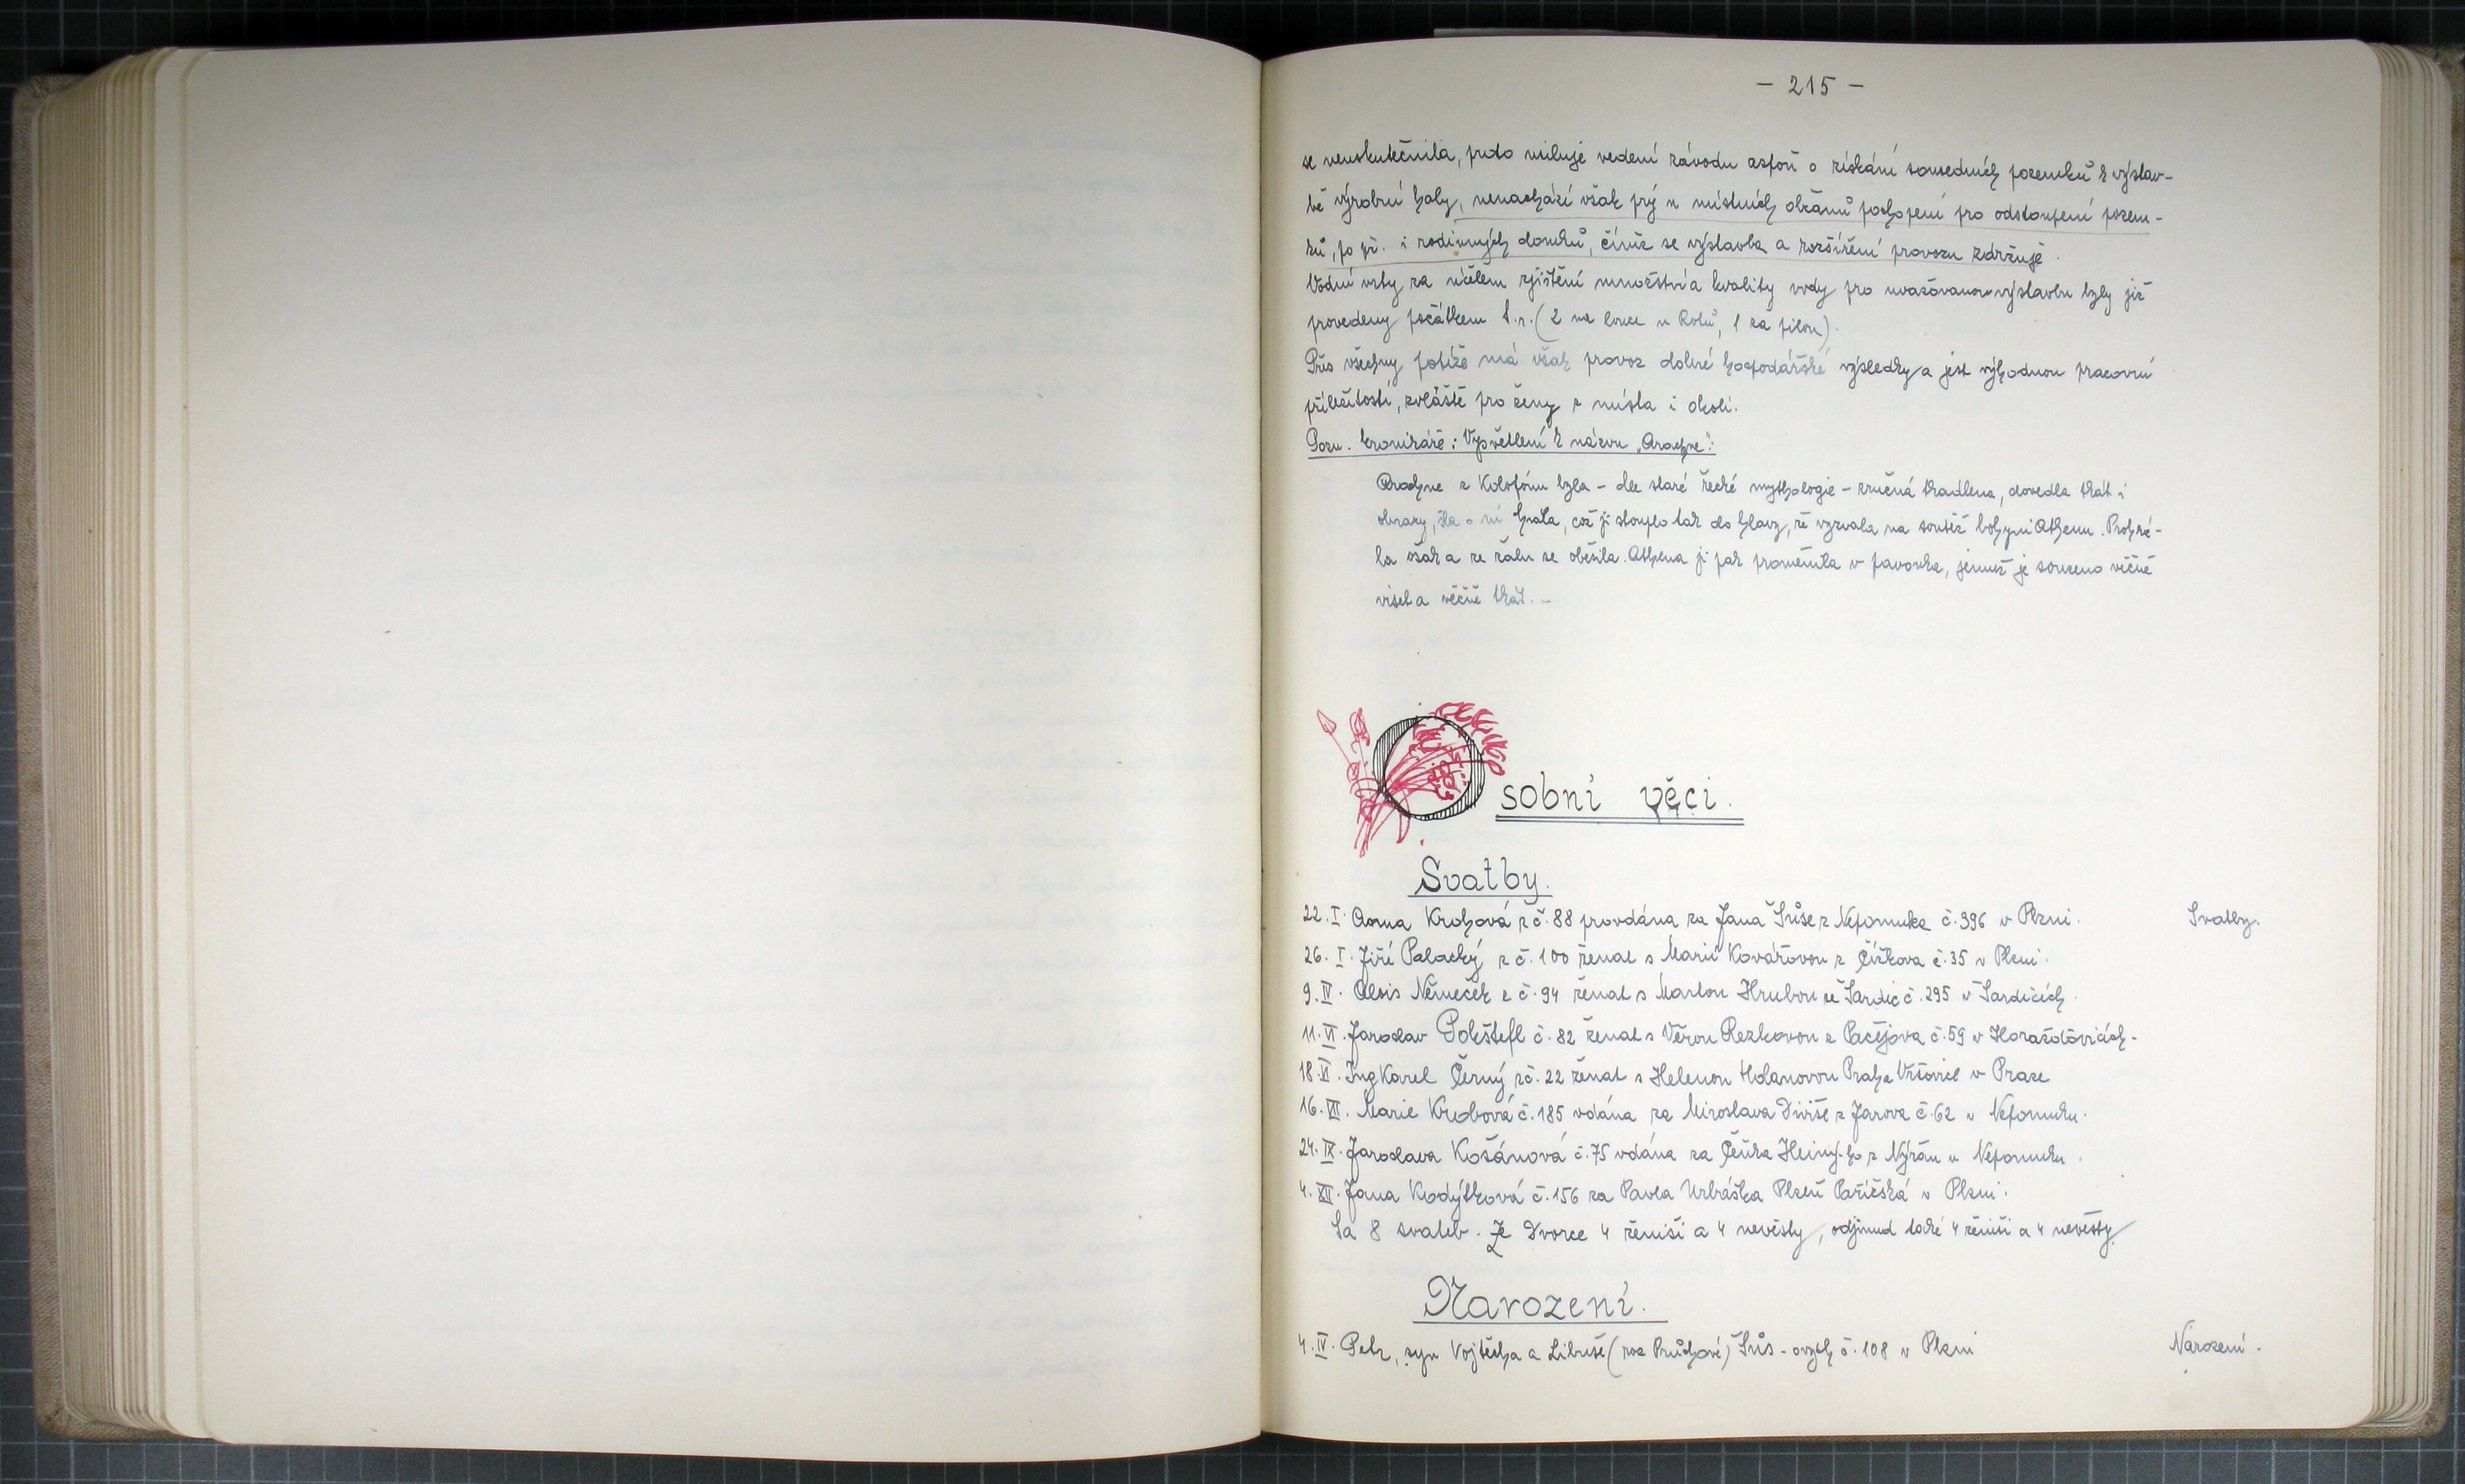 - 215 -
se neuskutečnila, proto usiluje vedení závodu aspoň o získání sousedních pozemků k výstav-
bě výrobní haly, nenachází však prý u místních občanů pochopení pro odstoupení pozem-
ků, po př. i rodinných domků, čímž se výstavba a rozšíření provozu zdržuje.
Vodní vrty za účelem zjištění množství a kvality vody pro uvažovanou výstavbu byly již
provedeny počátkem t.r. (2 na louce u Rotů, 1 za pilou).
Přes všechny potíže má však provoz dobré hospodářské výsledky a jest výhodnou pracovní
příležitostí, zvláště pro ženy z místa i okolí.
Pozn. kronikáře: Vysvětlení k názvu "Arachne":
Arachne z Kolofónu byla - dle staré řecké mythologie - zručná tkadlena, dovedla tkát i
obrazy, šla o ní chvála, což jí stouplo tak do hlavy, že vyzvala na soutěž bohyni Athenu. Prohrá-
la však a ze žalu se oběsila. Athena ji pak proměnila v pavouka, jemuž je souzeno věčně
viset a věčně tkát. -
Osobní věci.
Svatby.
22. I. Anna Krohová z č. 88 provdána za Jana Šůse z Nepomuka č. 396 v Plzni. Svatby.
26. I. Jiří Palacký z č. 100 ženat s Marií Kovářovou z Čížkova č. 35 v Plzni.
9. IV. Alois Němeček z č. 94 ženat s Martou Hrubou ze Šardic č. 295 v Šardicích.
11. VI. Jaroslav Pokštefl č. 82 ženat s Věrou Rezkovou z Pačejova č. 59 v Horažďovicích.
18. VI. Ing Karel Černý z č. 22 ženat s Helenou Holanovou Praha Vršovice v Praze
16. VII. Marie Krobová č. 185 vdána za Miroslava Diviše z Jarova č. 62 v Nepomuku.
24. IX. Jaroslava Košánová č. 75 vdána za Čeňka Heiný-ho z Nýřan v Nepomuku.
4. XII. Jana Kodýtková č. 156 za Pavla Urbáška Plzeň Pařížská v Plzni.
Sa 8 svateb. Ze Dvorce 4 ženiši a 4 nevěsty, odjinud také 4 ženiši a 4 nevěsty.
Narození.
4. IV. Petr, syn Vojtěcha a Libuše (roz Průchové) Šůs-ových č. 108 v Plzni Narození.